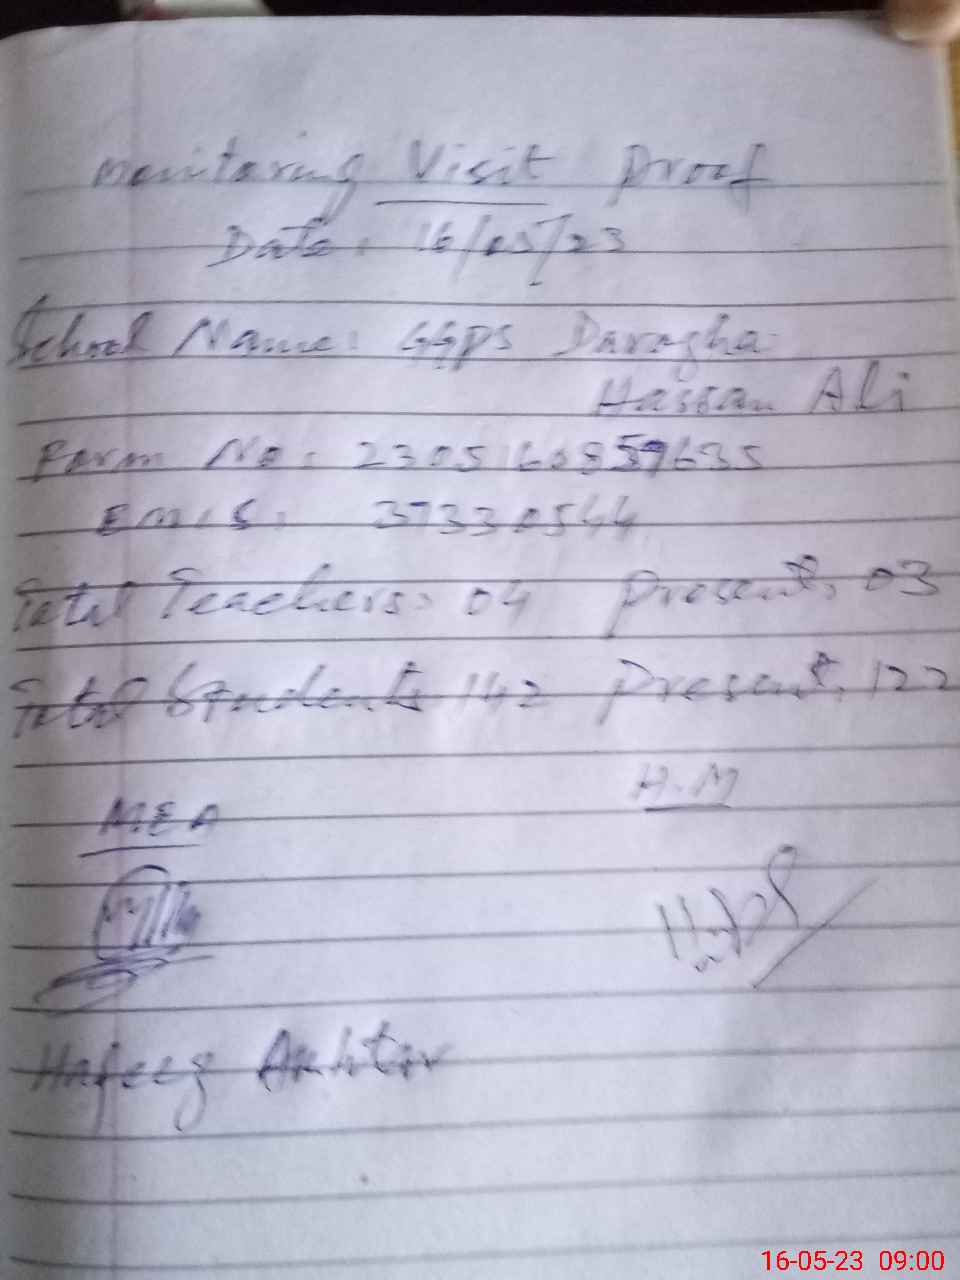 Monitoring Visit Proof
Date: 16/05/23
School Name: GGPS Darogha
Hassan Ali
Form No: 230516085 9635
EMIS: 37330544
Total Teachers: 04 Present: 03
Total Students 142 Present: 122
H.M
MEA
Hafeez Akhtar
16-05-23 09:00